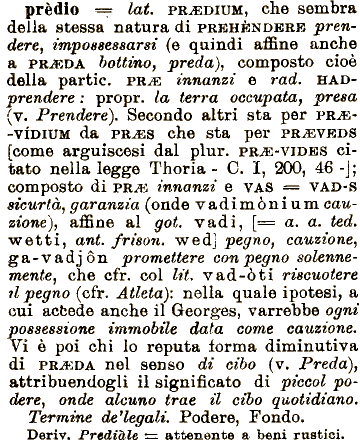 prèdio = lat. PRÆDIUM, che sembra
della stessa natura di PREHÈNDERE pren-
dere, impossessarsi (e quindi affine anche
a PRÆDA bottino, preda), composto cioè
della partic. PRÆ innanzi e rad. HAD-
prendere: propr. la terra occupata, presa
(v. Prendere). Secondo altri sta per PRÆ-
-VÍDIUM da PRÆS che sta per PRÆVEDS
[come arguiscesi dal plur. PRÆ-VIDES ci-
tato nella legge Thoria - C. I, 200, 46 -];
composto di PRÆ innanzi e VAS = VAD-S
sicurtà, garanzia (onde vadimònium cau-
zione), affine al got. vadi, [= a. a. ted.
wetti, ant. frison. wed] pegno, cauzione,
ga-vadjôn promettere con pegno solenne-
mente, che cfr. col lit. vad-òti riscuotere
il pegno (cfr. Atleta): nella quale ipotesi, a
cui accede anche il Georges, varrebbe ogni
possessione immobile data come cauzione.
Vi è poi chi lo reputa forma diminutiva
di PRÆDA nel senso di cibo (v. Preda),
attribuendogli il significato di piccol po-
dere, onde alcuno trae il cibo quotidiano.
Termine de'legali. Podere, Fondo.
Deriv. Prediàle = attenente a beni rustici.